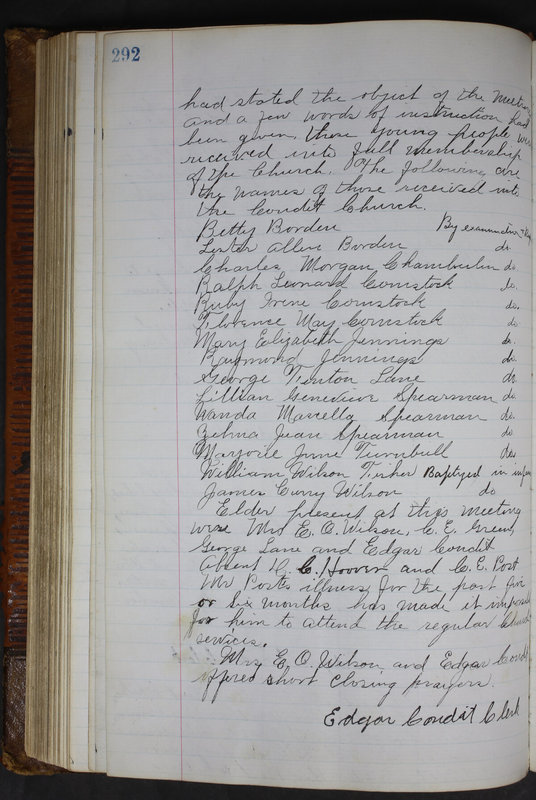 292
had stated the object of the Meeting
and a few words of instruction had
been given, these young people were
received into full membership
of the Church. The following are
the names of those received into
the Condit Church.
Betty Borden By examination &
Lester Allen Borden do.
Charles Morgan Chamberlin do.
Ralph Leonard Comstock do.
Ruby Irene Comstock do.
Florence May Comstock do.
Mary Elizabeth Jennings do.
Raymond Jennings do.
George Fenton Lane do
Lillian Genevieve Spearman do
Wanda Marcella Spearman do.
Zelma Jean Spearman do
Marjorie June Turnbull do.
William Wilson Tisher Baptized in
James Curry Wilson do
Elder present at this meeting
were Mrs E. O. Wilson, C. E. Green,
George Lane and Edgar Condit
Absent H. C. Hoover and C. E. Post
Mr Posts illness for the past five
or six months has made it
for him to attend the regular Church
services.
Mrs E. O. Wilson and Edgar Condit
offered short closing prayers.
Edgar Condit Clerk